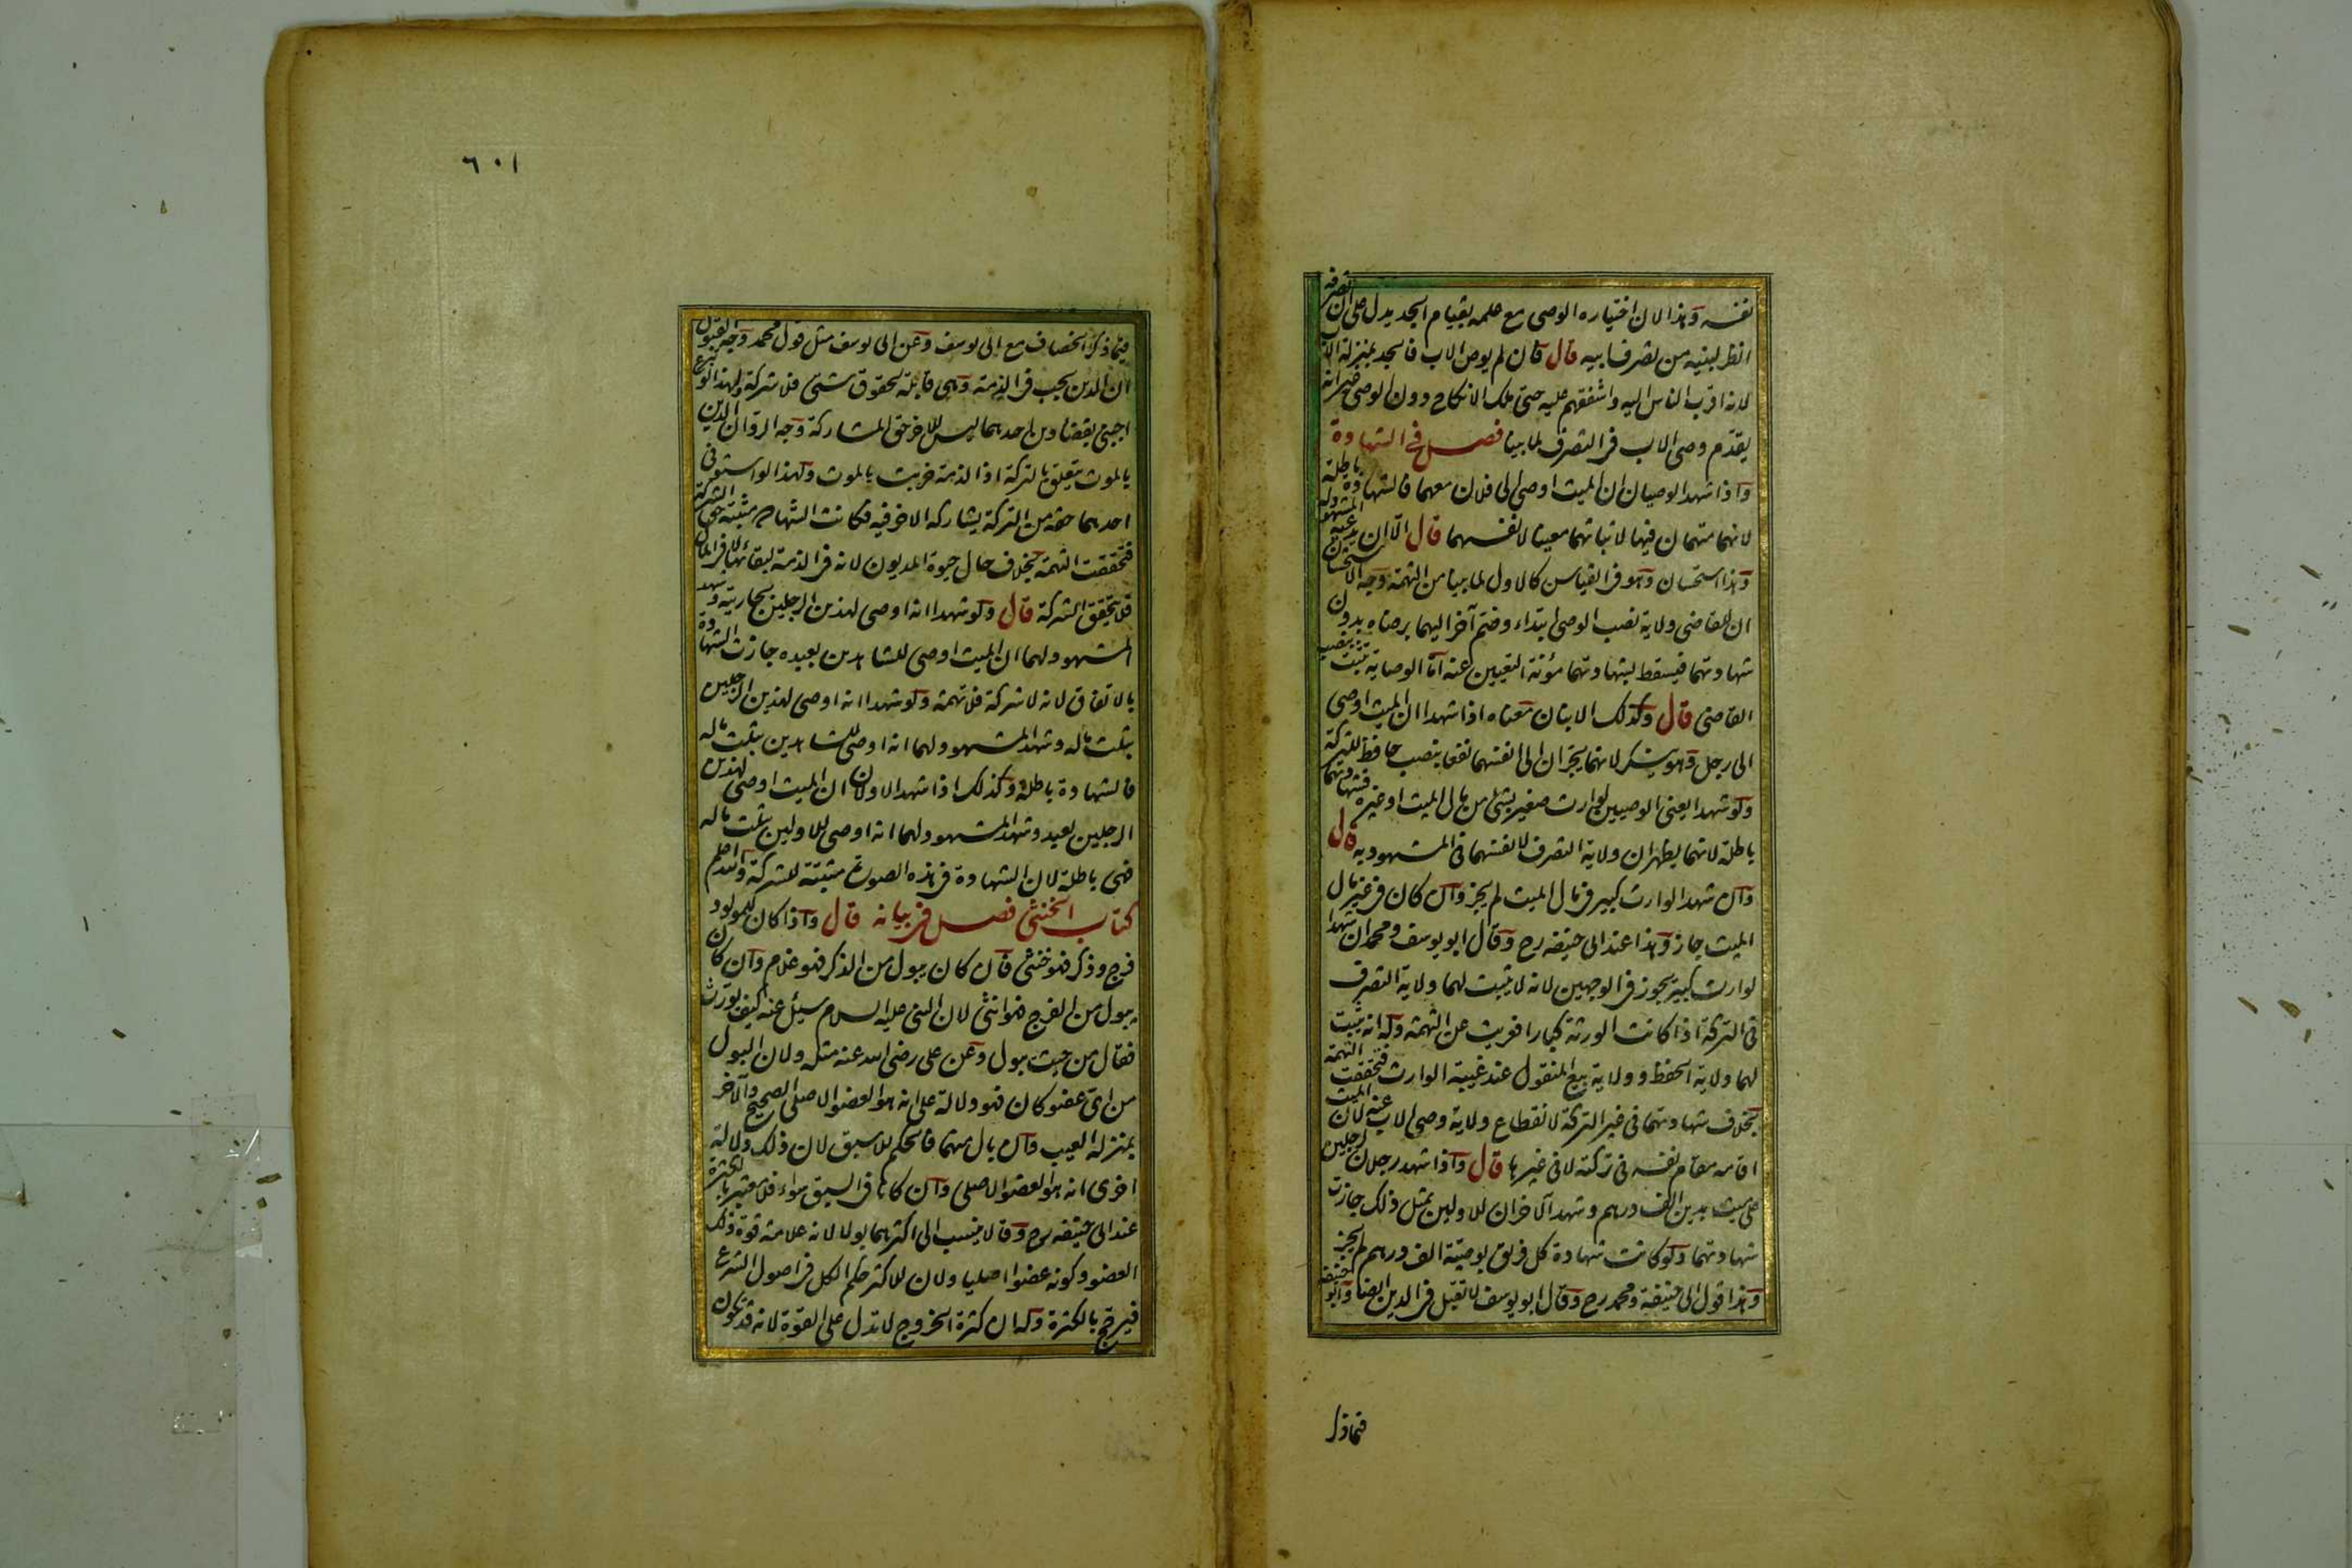 نفسه وهذا لان اختياره الوصي مع علمه بقيام الجد يدل على ان تصرفه
انظر لبنيه من تصرف ابيه قال فان لم يوص الاب فالجد بمنزلة الاب
لانه اقرب الناس اليه واشفقهم عليه حتى ملك الانكاح دون الوصي غير انه
يقدم وصي الاب في التصرف لما بينا فصل في الشهادة
واذا شهد الوصيان ان الميت اوصى الى فلان معهما فالشهادة باطلة
لانهما متهمان فيها لاثباتهما معينا لانفسهما قال الا ان يدعيه المشهود له
وهذا استحسان وهو في القياس كالاول لما بينا من التهمة وجه الاستحسان
ان للقاضي ولاية نصب الوصي ابتداء وضم آخر اليهما برضاه بدون
شهادتهما فيسقط بشهادتهما مؤنة التعيين عنه اما الوصاية تثبت بنصب
القاضي قال وكذلك الابنان معناه اذا شهدا ان الميت اوصى
الى رجل وهو ينكر لانهما يجران الى انفسهما نفعا بنصب حافظ للتركة
ولو شهدا يعني الوصيين لوارث صغير بشئ من مال الميت او غيره فشهادتهما
باطلة لانهما يظهران ولاية التصرف لانفسهما في المشهود به قال
وان شهدا لوارث كبير في مال الميت لم يجز وان كان في غير مال
الميت جاز وهذا عند ابي حنيفة رح وقال ابو يوسف ومحمد ان شهدا
لوارث كبير يجوز في الوجهين لانه لا يثبت لهما ولاية التصرف
في التركة اذا كانت الورثة كبارا فعريت عن التهمة وله انه يثبت
لهما ولاية الحفظ وولاية بيع المنقول عند غيبة الوارث فتحققت التهمة
بخلاف شهادتهما في غير التركة لانقطاع ولاية وصي الاب عنه لان الميت
اقامه مقام نفسه في تركته لا في غيرها قال واذا شهد رجلان لرجلين
على ميت بدين الف درهم وشهد الآخران للاولين بمثل ذلك جازت
شهادتهما ولو كانت شهادة كل فريق بوصية الف درهم لم يجز
وهذا قول ابي حنيفة ومحمد رح وقال ابو يوسف لا تقبل في الدين ايضا وابو حنيفة
فيما ذكر
٦٠١
فيما ذكر الخصاف مع ابي يوسف وعن ابي يوسف مثل قول محمد وجه القبول
ان الدين يجب في الذمة وهي قابلة لحقوق شتى فلا شركة ولهذا لو تبرع
اجنبي بقضاء دين احدهما ليس للاخر حق المشاركة وجه الرد ان الدين
بالموت يتعلق بالتركة اذا الذمة خربت بالموت ولهذا لو استوفى
احدهما حقه من التركة يشاركه الاخر فيه فكانت الشهادة مثبتة حق الشركة
فتحققت التهمة بخلاف حال حيوة المديون لانه في الذمة لبقائها لا في المال
فلا تتحقق الشركة قال ولو شهدا انه اوصى لهذين الرجلين بجاريته وشهد
المشهود لهما ان الميت اوصى للشاهدين بعبده جازت الشهادة
بالاتفاق لانه لا شركة فلا تهمة ولو شهدا انه اوصى لهذين الرجلين
بثلث ماله وشهد المشهود لهما انه اوصى للشاهدين بثلث ماله
فالشهادة باطلة وكذلك اذا شهد الاولان ان الميت اوصى لهذين
الرجلين بعبد وشهد المشهود لهما انه اوصى للاولين بثلث ماله
فهي باطلة لان الشهادة في هذه الصورة مثبتة للشركة والله اعلم
كتاب الخنثى فصل في بيانه قال واذا كان للمولود
فرج وذكر فهو خنثى فان كان يبول من الذكر فهو غلام وان كان
يبول من الفرج فهو انثى لان النبي عليه السلام سئل عنه كيف يورث
فقال من حيث يبول وعن علي رضي الله عنه مثله ولان البول
من اي عضو كان فهو دلالة على انه هو العضو الاصلي الصحيح والآخر
بمنزلة العيب وان بال منهما فالحكم للاسبق لان ذلك دلالة
اخرى انه هو العضو الاصلي وان كانا في السبق سواء فلا معتبر بالكثرة
عند ابي حنيفة رح وقالا ينسب الى اكثرهما بولا لانه علامة قوة ذلك
العضو وكونه عضوا اصليا ولان للاكثر حكم الكل في اصول الشرع
فيرجح بالكثرة وله ان كثرة الخروج لا تدل على القوة لانه قد يكون